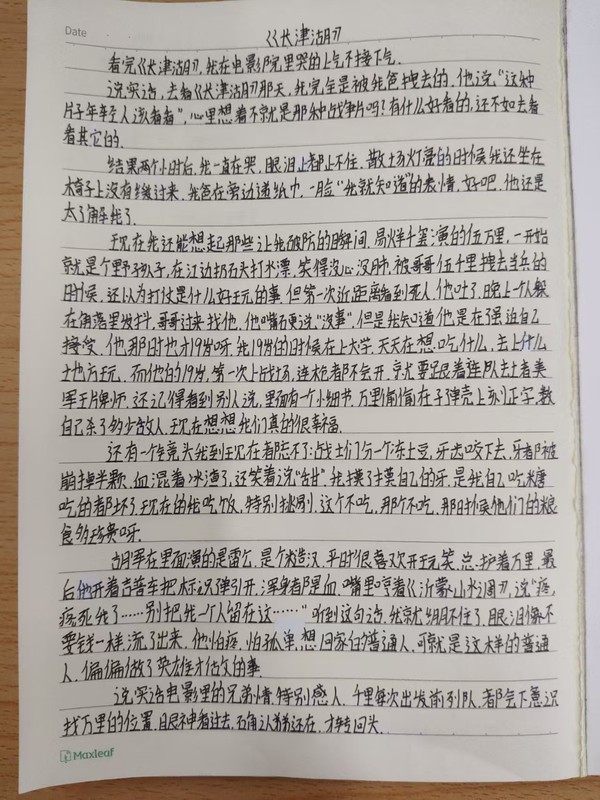 Date
《长津湖》
看完《长津湖》,我在电影院里哭的上气不接下气.
说实话,去看《长津湖》那天,我完全是被我爸拽去的,他说"这种
片子年轻人该看看",心里想着不就是那种战争片吗?有什么好看的,还不如去看
看其它的.
结果两个小时后,我一直在哭,眼泪止都止不住,散场灯亮的时候我还坐在
椅子上没有缓过来,我爸在旁边递纸巾,一脸"我就知道"的表情,好吧,他还是
太了解我了.
现在我还能想起那些让我破防的瞬间,易烊千玺演的伍万里,一开始
就是个野孩子,在江边扔石头打水漂,笑得没心没肺,被哥哥伍千里拽去当兵的
时候,还以为打仗是什么好玩的事,但第一次近距离看到死人,他吐了,晚上一个人躲
在角落里发抖,哥哥过来找他,他嘴硬说"没事",但是我知道他是在强迫自己
接受,他那时也才19岁呀,我19岁的时候在上大学,天天在想吃什么,去上什么
地方玩,而他的19岁,第一次上战场,连枪都不会开,就要跟着连队去打美
军王牌师,还记得看到别人说,里面有一个小细节,万里偷偷在子弹壳上刻正字,数
自己杀了多少敌人,现在想想我们真的很幸福.
还有一个镜头我到现在都忘不了:战士们分一个冻土豆,牙齿咬下去,牙都被
崩掉半颗,血混着冰渣了,还笑着说"甜",我摸了摸自己的牙,是我自己吃糖
吃的都坏了,现在的我吃饭,特别挑剔,这个不吃,那个不吃,那时候他们的粮
食多珍贵呀.
胡军在里面演的是雷公,是个糙汉,平时很喜欢开玩笑,总护着万里,最
后他开着吉普车把标识弹引开,浑身都是血,嘴里哼着《沂蒙山小调》,说"疼,
疼死我了……别把我一个人留在这……"听到这句话,我就绷不住了,眼泪像不
要钱一样,流了出来,他怕疼,怕孤单,想回家的普通人,可就是这样的普通
人,偏偏做了英雄才估做的事.
说实话电影里的兄弟情,特别感人,千里每次出发前列队,都会下意识
找万里的位置,眼神看过去,确认弟弟还在,才转回头.
Maxleaf